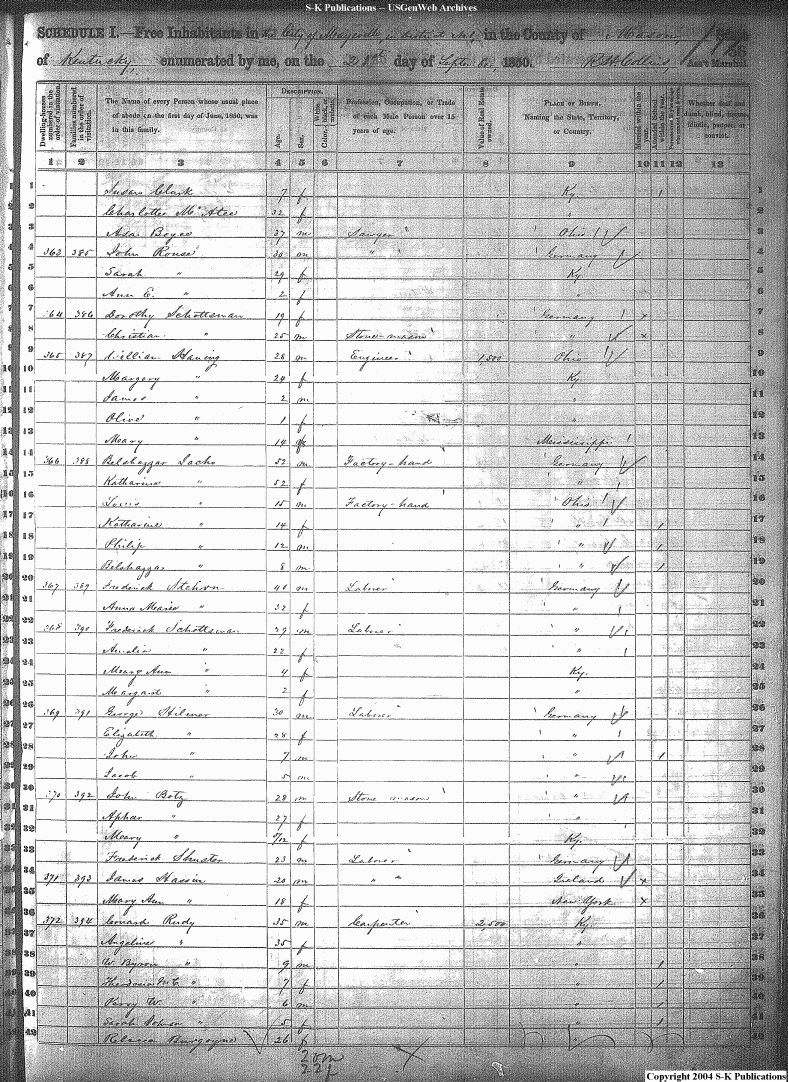 S-K Publications -- USGenWeb Archives
SCHEDULE I.—Free Inhabitants in the City of Maysville in district No. 1, in the County of Mason State
of Kentucky, enumerated by me, on the 28th day of Septr., 1850. Ass't Marshal.
Dwelling-houses numbered in the order of visitation.
Families numbered in the order of visitation.
The Name of every Person whose usual place of abode on the first day of June, 1850, was in this family.
DESCRIPTION.
Age.
Sex.
White, Color, black, or mulatto.
Profession, Occupation, or Trade of each Male Person over 15 years of age.
Value of Real Estate owned.
PLACE OF BIRTH. Naming the State, Territory, or Country.
Married within the year.
Attended School within the year.
Whether deaf and dumb, blind, insane, idiotic, pauper, or convict.
1 2 3 4 5 6 7 8 9 10 11 12 13
1 Susan Clark 7 f Ky. 1
2 Charlotte McAtee 32 f " 2
3 Asa Boyce 37 m Sawyer Ohio 3
4 362 385 John Rouse 30 m " Germany 4
5 Sarah " 29 f Ky 5
6 Ann E. " 2 f " 6
7 364 386 Dorothy Schottsman 19 f Germany x 7
8 Christian " 25 m Stone-mason " x 8
9 365 387 William Haning 28 m Engineer 1,500 Ohio 9
10 Margery " 24 f Ky. 10
11 James " 2 m " 11
12 Olive " 1 f " 12
13 Meary " 14 f Mississippi 13
14 366 388 Belshazzar Sachs 52 m Factory-hand Germany 14
15 Katharine " 52 f " 15
16 Louis " 15 m Factory-hand Ohio 16
17 Katharine " 14 f " 17
18 Philip " 12 m " 18
19 Belshazzar " 8 m " 19
20 367 389 Frederick 40 m Laborer Germany 20
21 Anna Mearie " 32 f " 21
22 368 390 Frederick Schottsman 29 m Laborer " 22
23 Amelia " 22 f " 23
24 Meary Ann " 4 f Ky. 24
25 Margaret " 2 f " 25
26 369 391 George Hilmer 30 m Laborer Germany 26
27 Elizabeth " 28 f " 27
28 John " 7 m " 28
29 Jacob " 5 m " 29
30 370 392 John Botz 28 m Stone mason " 30
31 " 27 f " 31
32 Meary " f Ky. 32
33 Frederick Shuster 23 m Laborer Germany 33
34 371 393 James Hassin 20 m " " Ireland x 34
35 Mary Ann " 18 f New York x 35
36 372 394 Leonard Rudy 35 m Carpenter 2,500 Ky. 36
37 Angeline " 35 f " 37
38 W. Byron " 9 m " 38
39 " 7 f " 39
40 Percy W. " 6 m " 40
41 Sarah " 5 f " 41
42 Rebecca Burgoyne 26 f " 42
20m
22f
Copyright 2004 S-K Publications